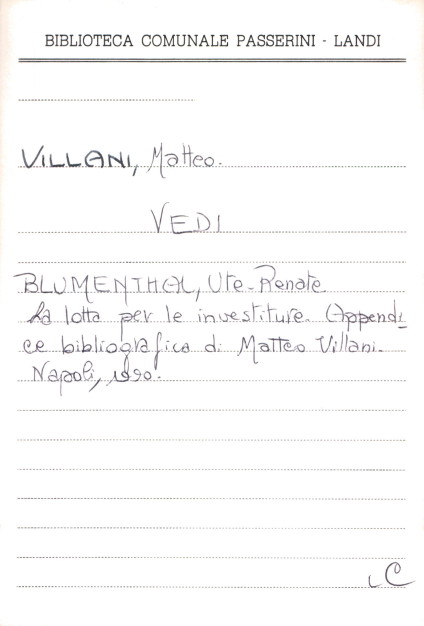 BIBLIOTECA COMUNALE PASSERINI - LANDI
VILLANI, Matteo.
VEDI
BLUMENTHAL, Ute-Renate
La lotta per le investiture. (Appendi
ce bibliografica di Matteo Villani.
Napoli, 1990.
LC